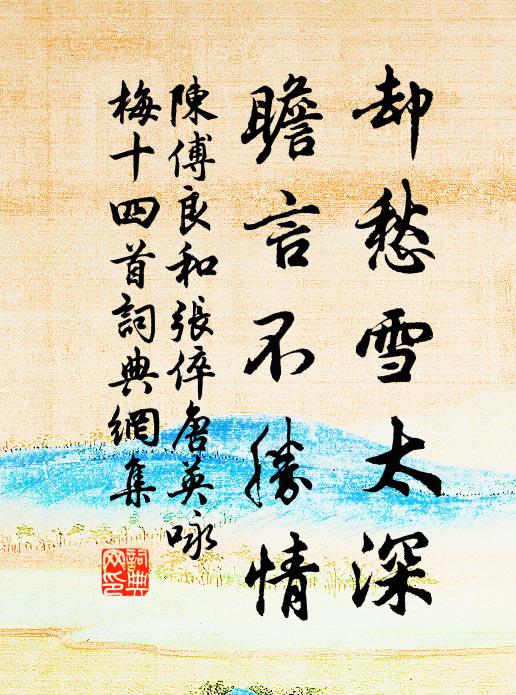 却愁雪太深
瞻言不勝情
陳傅良和張倅唐英咏
梅十四首詞典網集
詞典
网印